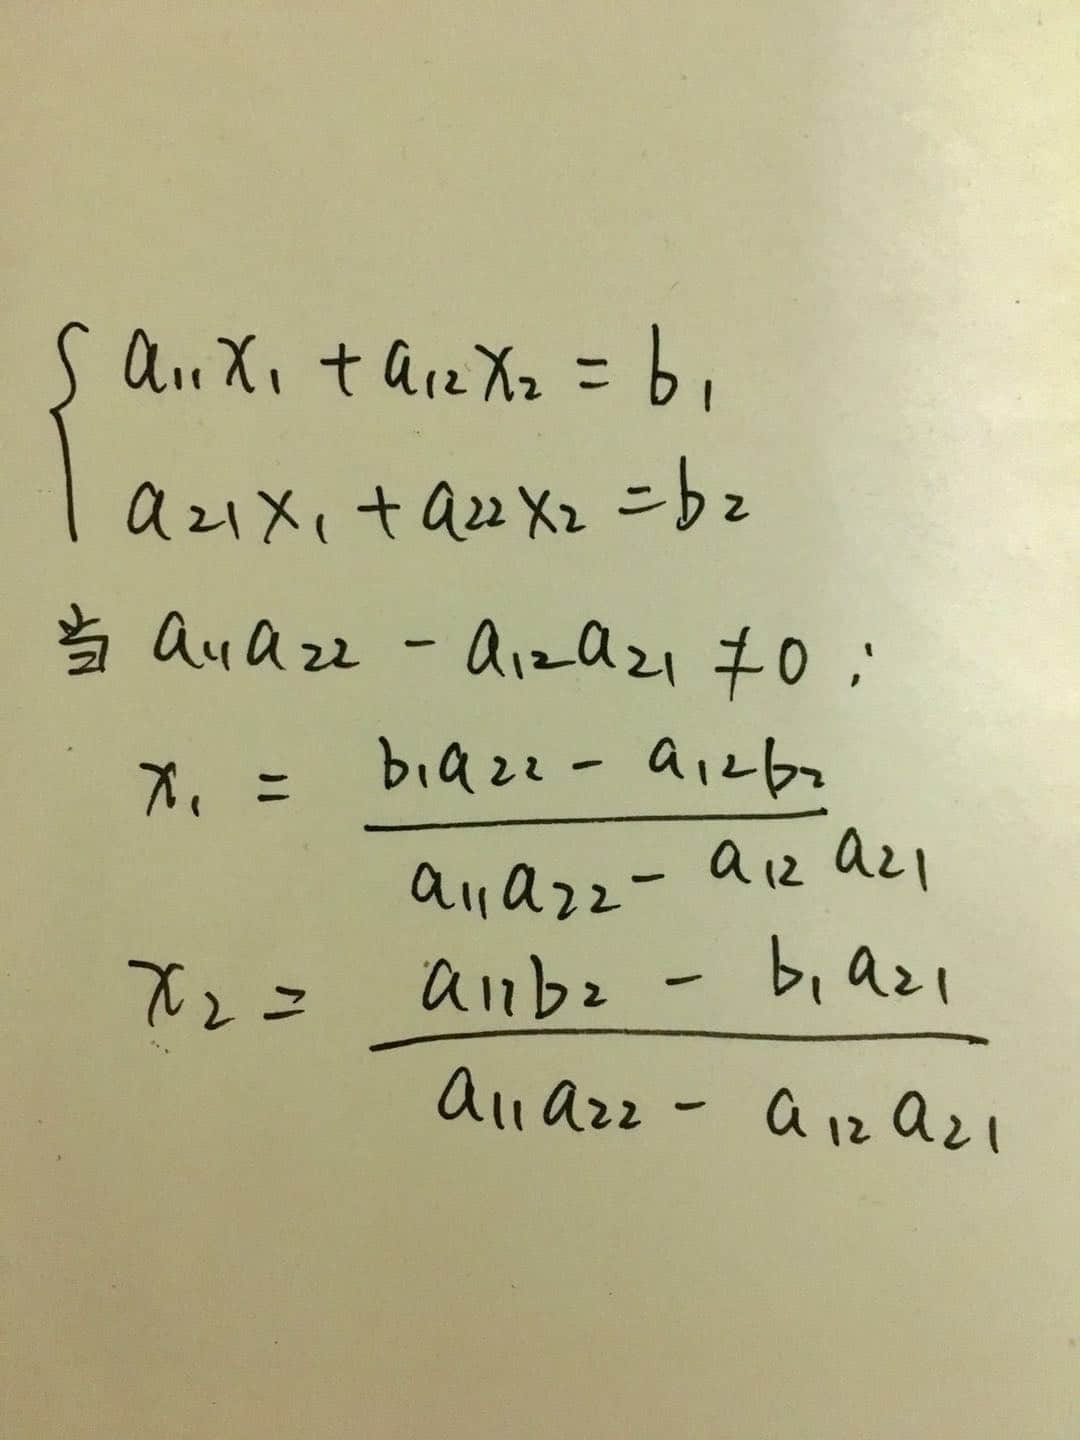 a₁₁x₁ + a₁₂x₂ = b₁
a₂₁x₁ + a₂₂x₂ = b₂
当 a₁₁a₂₂ - a₁₂a₂₁ ≠ 0 :
x₁ = (b₁a₂₂ - a₁₂b₂) / (a₁₁a₂₂ - a₁₂a₂₁)
x₂ = (a₁₁b₂ - b₁a₂₁) / (a₁₁a₂₂ - a₁₂a₂₁)